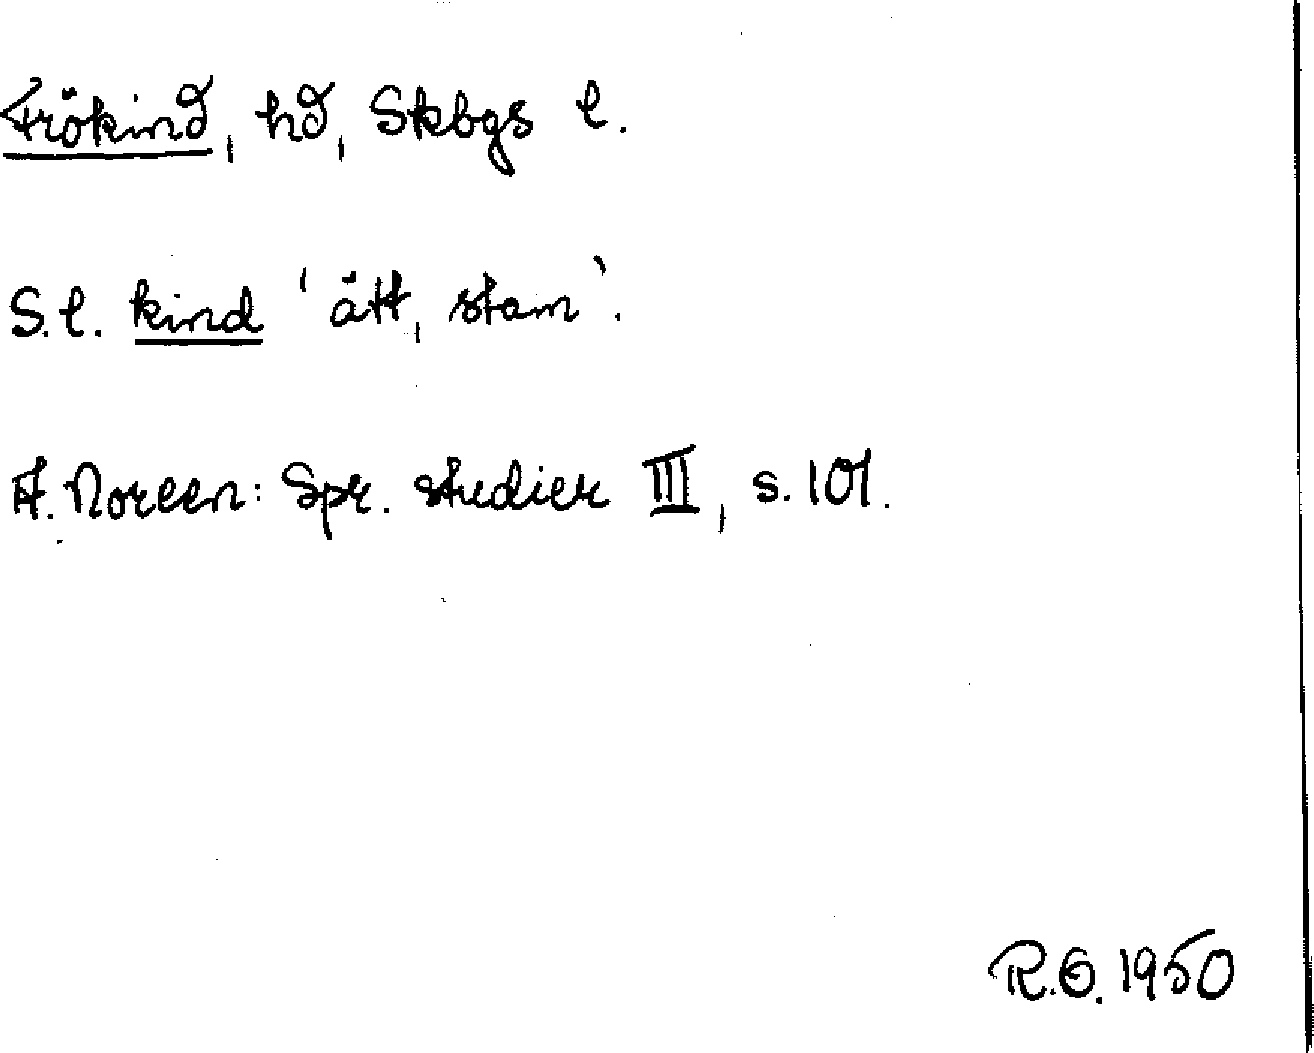 Frökind, hd, Skbgs l.
S.l. kind 'ätt, stam'.
A. Noreen: Spr. studier III, s. 101.
R.G. 1950